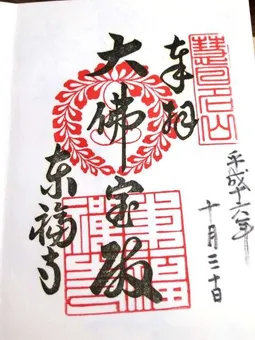 慧日山
奉拝
平成十六年
十月三十日
大佛宝殿
東福禪寺
東福寺